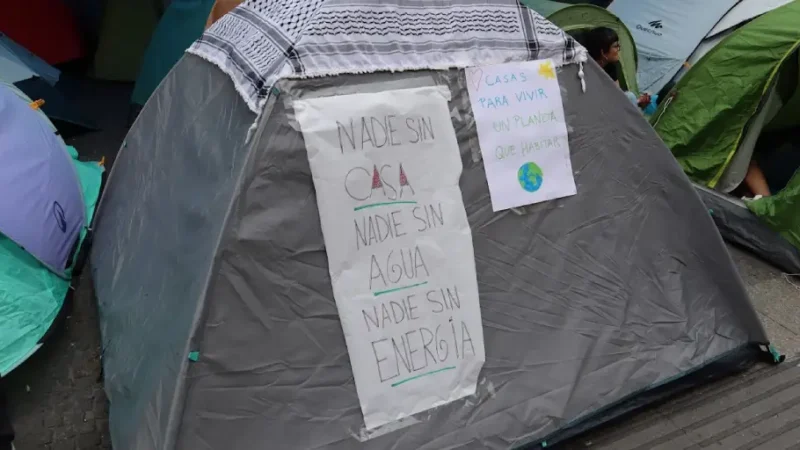 NADIE SIN
CASA
NADIE SIN
AGUA
NADIE SIN
ENERGÍA
CASAS
PARA VIVIR
UN PLANETA
QUE HABITAR
Quechua